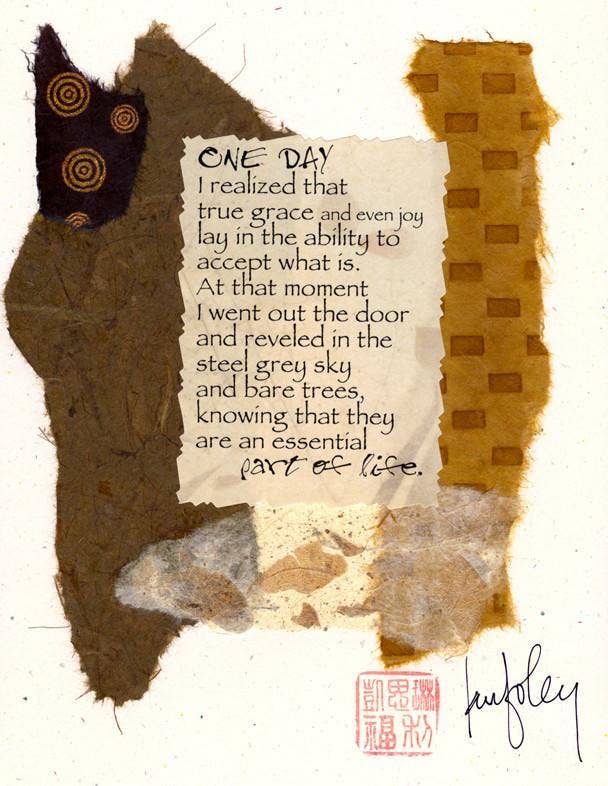 ONE DAY
I realized that
true grace and even joy
lay in the ability to
accept what is.
At that moment
I went out the door
and reveled in the
steel grey sky
and bare trees,
knowing that they
are an essential
part of life.
凱思琳
福利